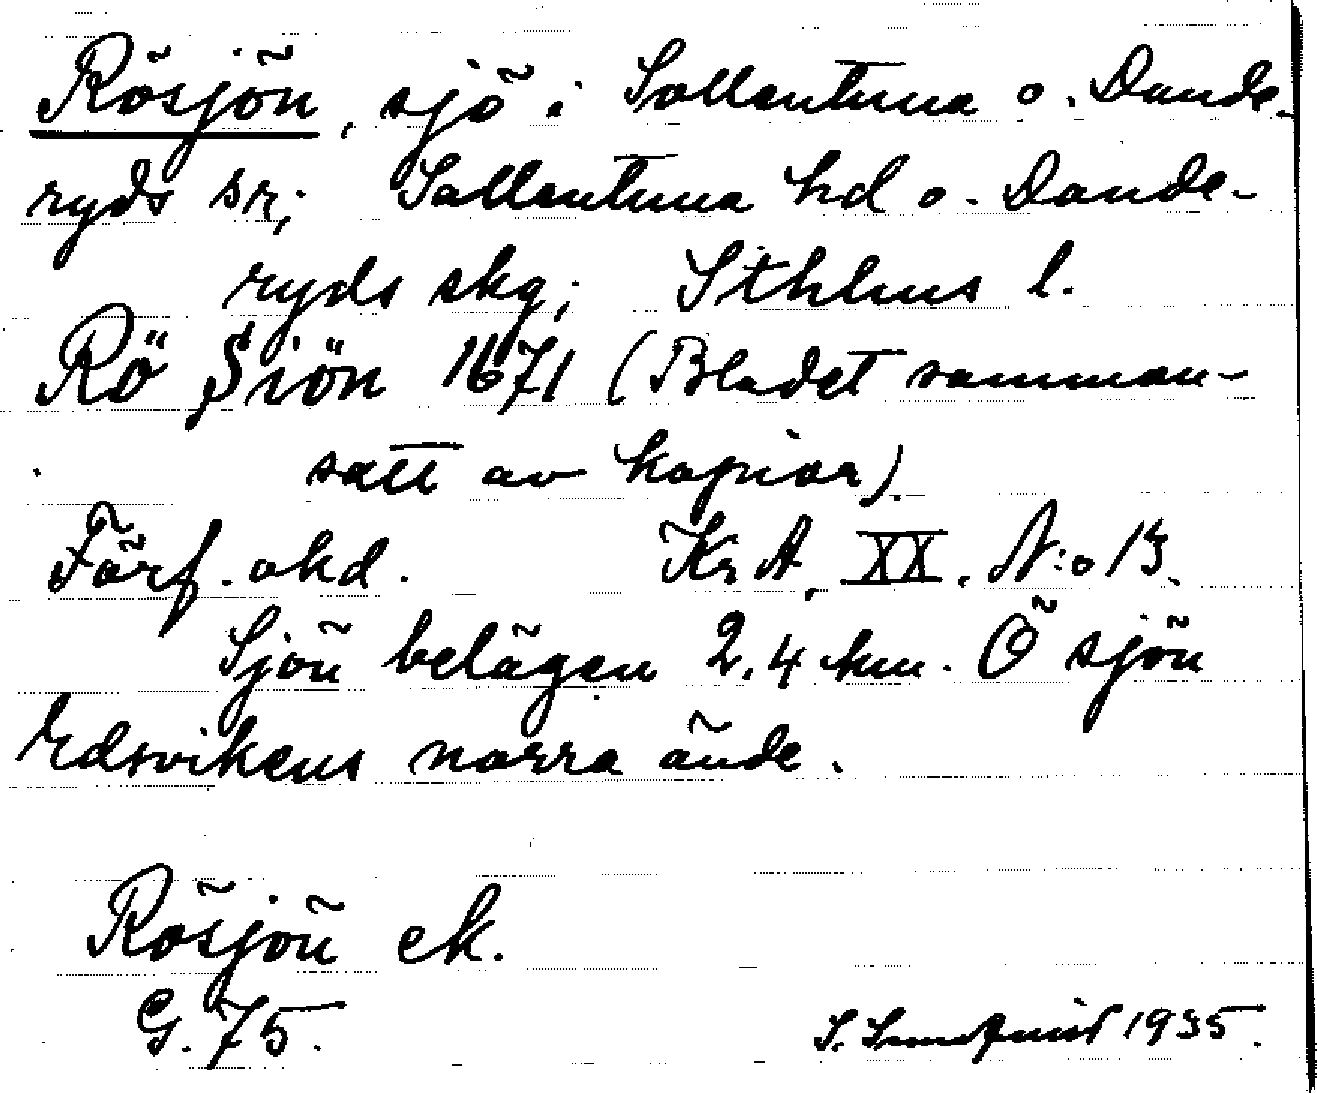 Rösjön, sjö i Sollentuna o. Dande-
ryds sr; Sollentuna hd o. Dande-
ryds skg; Sthlms l.
Rö Siön 1671 (Bladet samman-
satt av kopior).
Förf. okd. Kr A. XX. N:o 13.
Sjön belägen 2,4 km. Ö sjön
Edsvikens norra ände.
Rösjön ek.
G. 75.
S. Sundquist 1935.